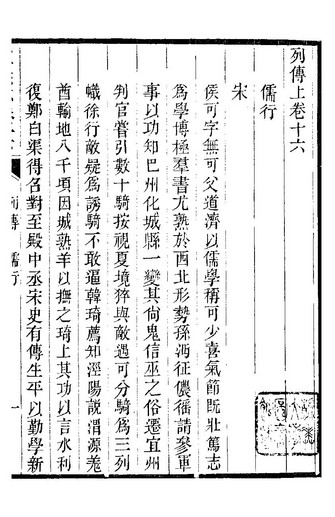 列傳上卷十六
儒行
宋
侯可字無可父道濟以儒學稱可少喜氣節既壯篤志
爲學博極羣書尤熟於西北形勢孫沔征儂徭請參軍
事以功知巴州化城縣一變其尚鬼信巫之俗遷宜州
判官嘗引數十騎按視夏境猝與敵遇可分騎爲三列
幟徐行敵疑爲誘騎不敢逼韓琦薦知涇陽說渭源羗
酋輸地八千項因城熟羊以撫之琦上其功以言水利
復鄭白渠得名對至殿中丞宋史有傳生平以勤學新
列傳 儒行 一